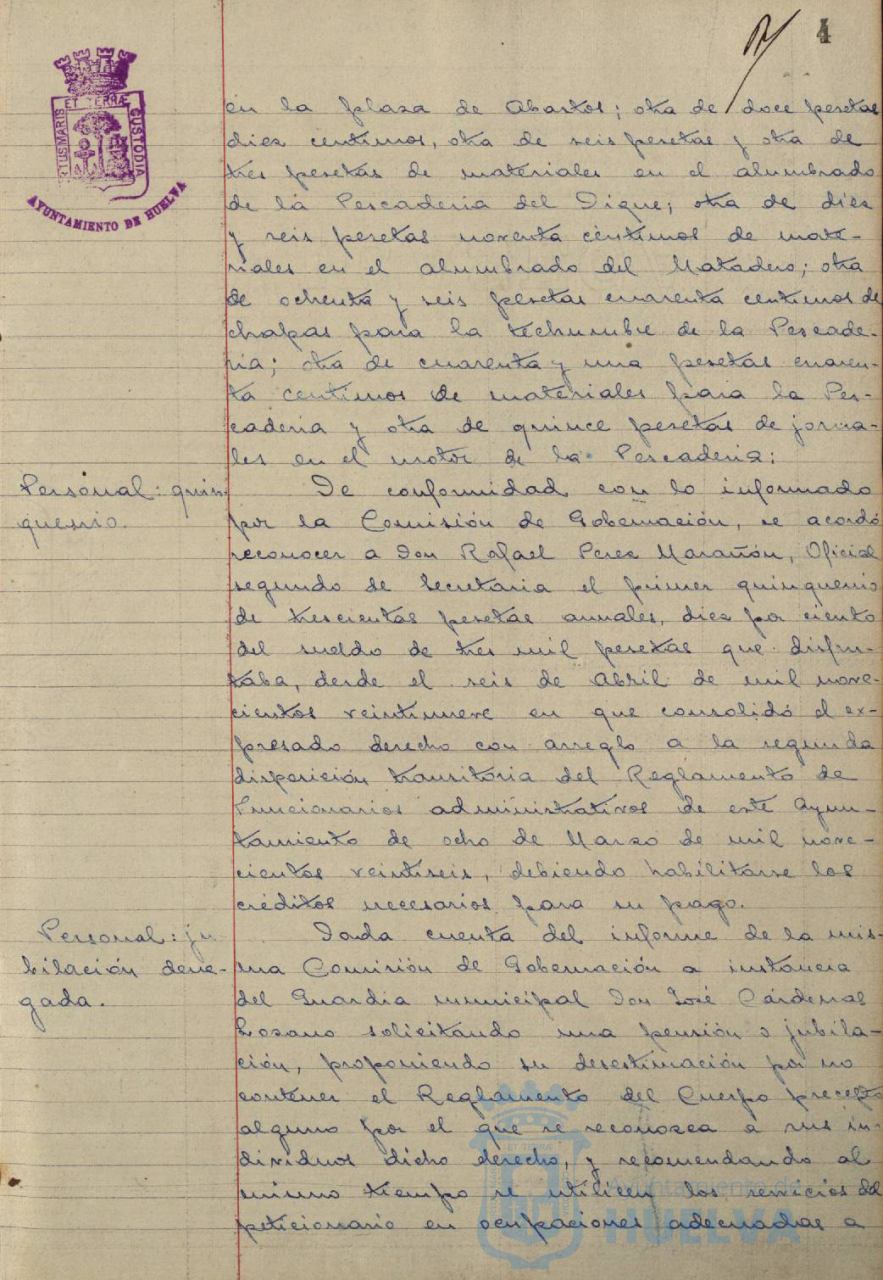 4
PORTUS MARIS ET TERRÆ CUSTODIA
AYUNTAMIENTO DE HUELVA
en la plaza de Abastos; otra de doce pesetas
diez centimos, otra de seis pesetas y otra de
tres pesetas de materiales en el alumbrado
de la Pescaderia del Dique; otra de diez
y seis pesetas noventa céntimos de mate-
riales en el alumbrado del Matadero; otra
de ochenta y seis pesetas cuarenta centimos de
chapas para la techumbre de la Pescade-
ria; otra de cuarenta y una pesetas cuaren-
ta centimos de materiales para la Pes-
caderia y otra de quince pesetas de jorna-
les en el motor de la Pescaderia;
Personal: quin-
quenio.
De conformidad con lo informado
por la Comisión de Gobernación, se acordó
reconocer a Don Rafael Perez Marañón, Oficial
segundo de Secretaria el primer quinquenio
de trescientas pesetas anuales, diez por ciento
del sueldo de tres mil pesetas que disfru-
taba, desde el seis de Abril de mil nove-
cientos veintinueve en que consolidó el ex-
presado derecho con arreglo a la segunda
disposición transitoria del Reglamento de
Funcionarios administrativos de este Ayun-
tamiento de ocho de Marzo de mil nove-
cientos veintiseis, debiendo habilitarse los
créditos necesarios para su pago.
Personal: ju
bilación dene-
gada.
Dada cuenta del informe de la mis-
ma Comisión de Gobernación a instancia
del Guardia municipal Don José Cárdenas
Lozano solicitando una pensión o jubila-
ción, proponiendo su desestimación por no
contener el Reglamento del Cuerpo precepto
alguno por el que se reconozca a sus in-
dividuos dicho derecho, y recomendando al
mismo tiempo se utilicen los servicios del
peticionario en ocupaciones adecuadas a
Ayuntamiento de
HUELVA